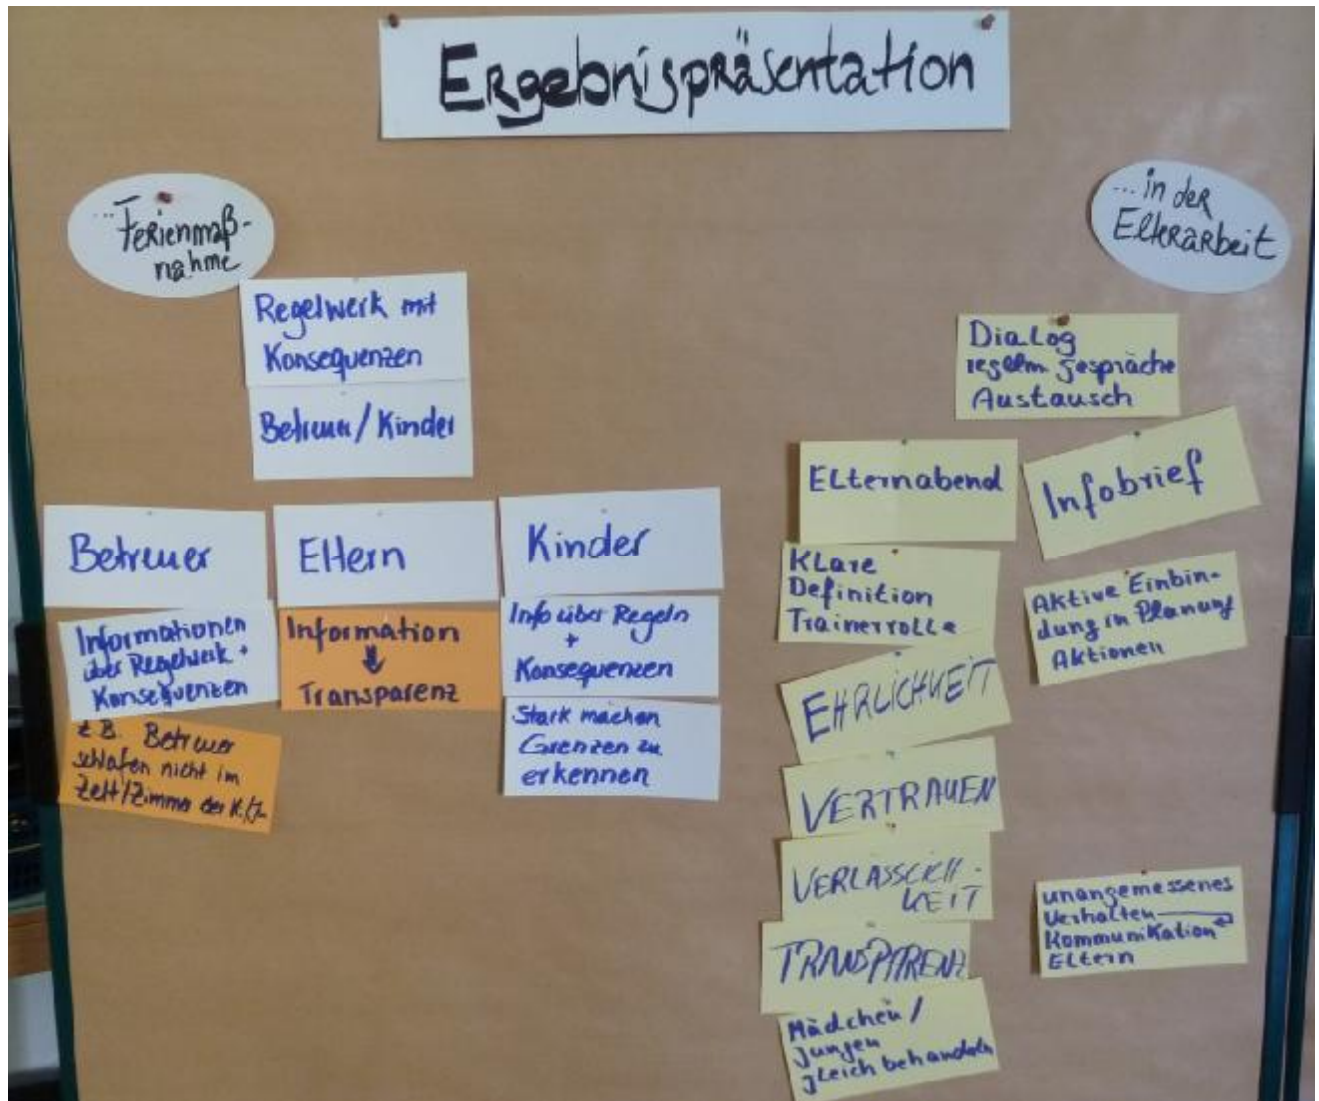 Ergebnispräsentation
...Ferienmaß-
nahme
Regelwerk mit
Konsequenzen
Betreuer/Kinder
Betreuer
Informationen
über Regelwerk +
Konsequenzen
z.B. Betreuer
schlafen nicht im
Zelt/Zimmer der K./J.
Eltern
Information
⇓
Transparenz
Kinder
Info über Regeln
+
Konsequenzen
Stark machen
Grenzen zu
erkennen
...in der
Elterarbeit
Dialog
regelm gespräche
Austausch
Elternabend
Infobrief
Klare
Definition
Trainerrolle
Aktive Einbin-
dung in Planung
Aktionen
EHRLICHKEIT
VERTRAUEN
VERLÄSSLICH-
KEIT
TRANSPARENZ
Mädchen/
Jungen
gleich behandeln
unangemessenes
Verhalten
Kommunikation
Eltern